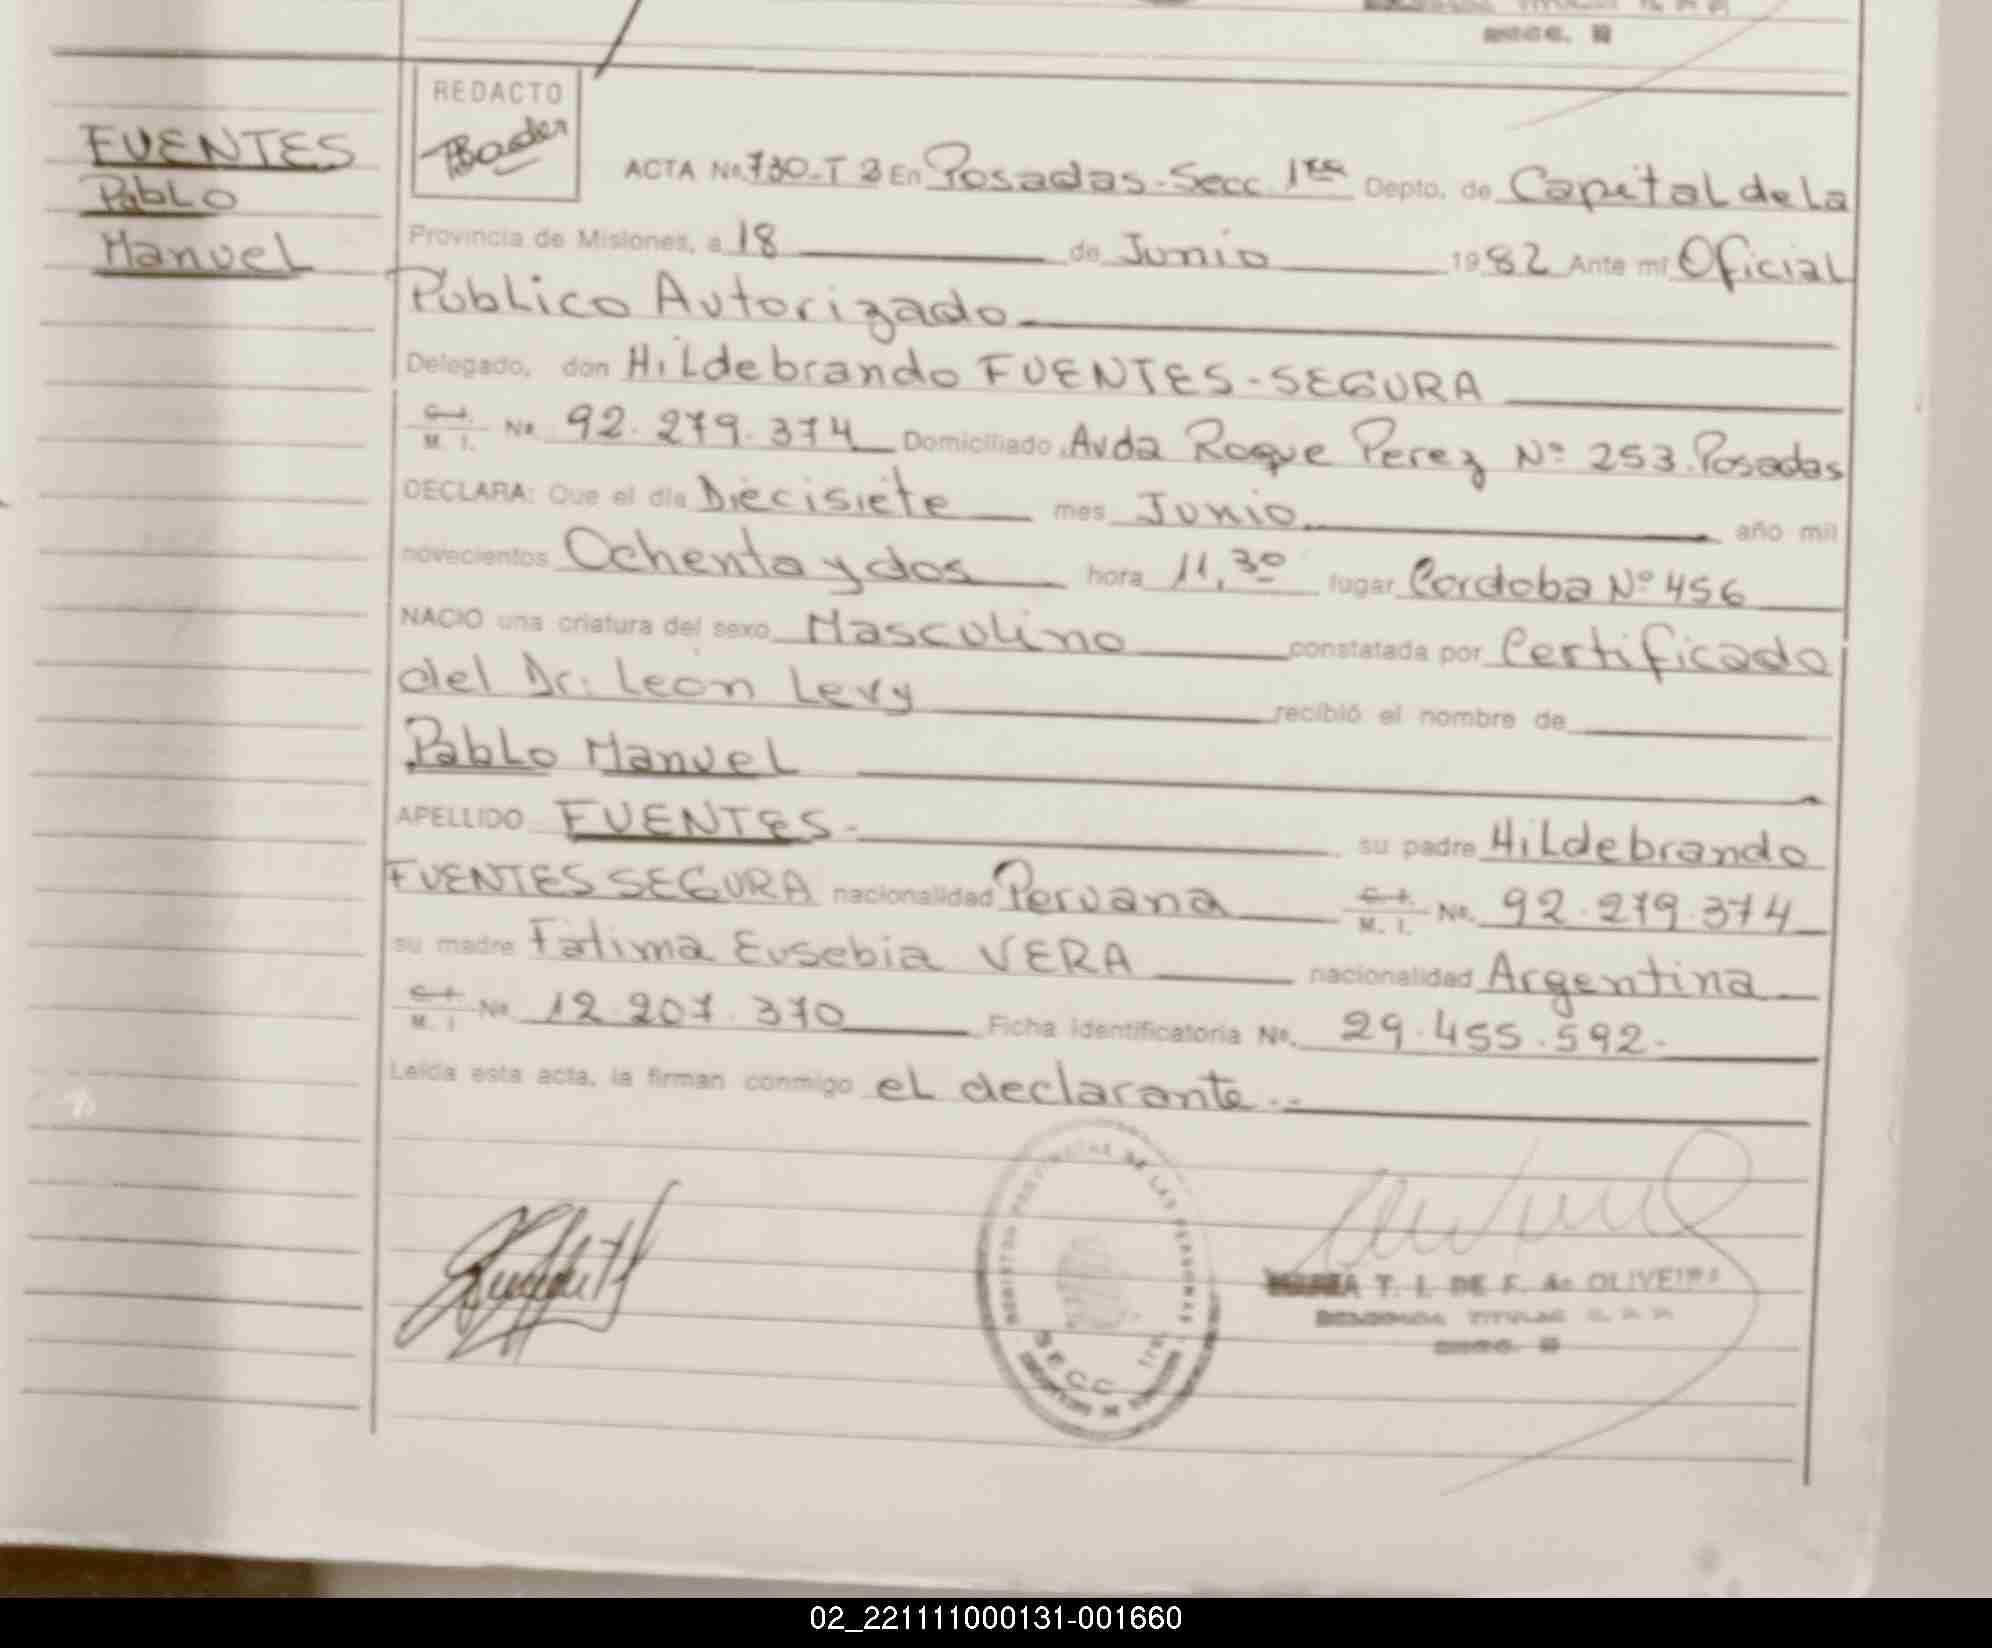 FUENTES
Pablo
Manuel
REDACTO
Bader
ACTA No. 730-T 3 En Posadas-Secc. 1ra Depto. de Capital de la
Provincia de Misiones, a 18 de Junio 1982 Ante mí Oficial
Público Autorizado
Delegado, don Hildebrando FUENTES-SEGURA
C. I. M. I. No. 92.279.374 Domiciliado Avda Roque Perez Nº 253. Posadas
DECLARA: Que el día Diecisiete mes Junio año mil
novecientos Ochenta y dos hora 11,30 lugar Cordoba Nº 456
NACIO una criatura del sexo Masculino constatada por Certificado
del Dr. León Levy recibió el nombre de
Pablo Manuel
APELLIDO FUENTES- su padre Hildebrando
FUENTES SEGURA nacionalidad Peruana C. I. M. I. No. 92.279.374
su madre Fátima Eusebia VERA nacionalidad Argentina
C. I. M. I. No. 12.207.370 Ficha identificatoria No. 29.455.592.
Leída esta acta, la firman conmigo el declarante..
REGISTRO PROVINCIAL DE LAS PERSONAS
SECC. 1ra.
T. I. DE F. de OLIVEIRA
TITULAR
02_221111000131-001660